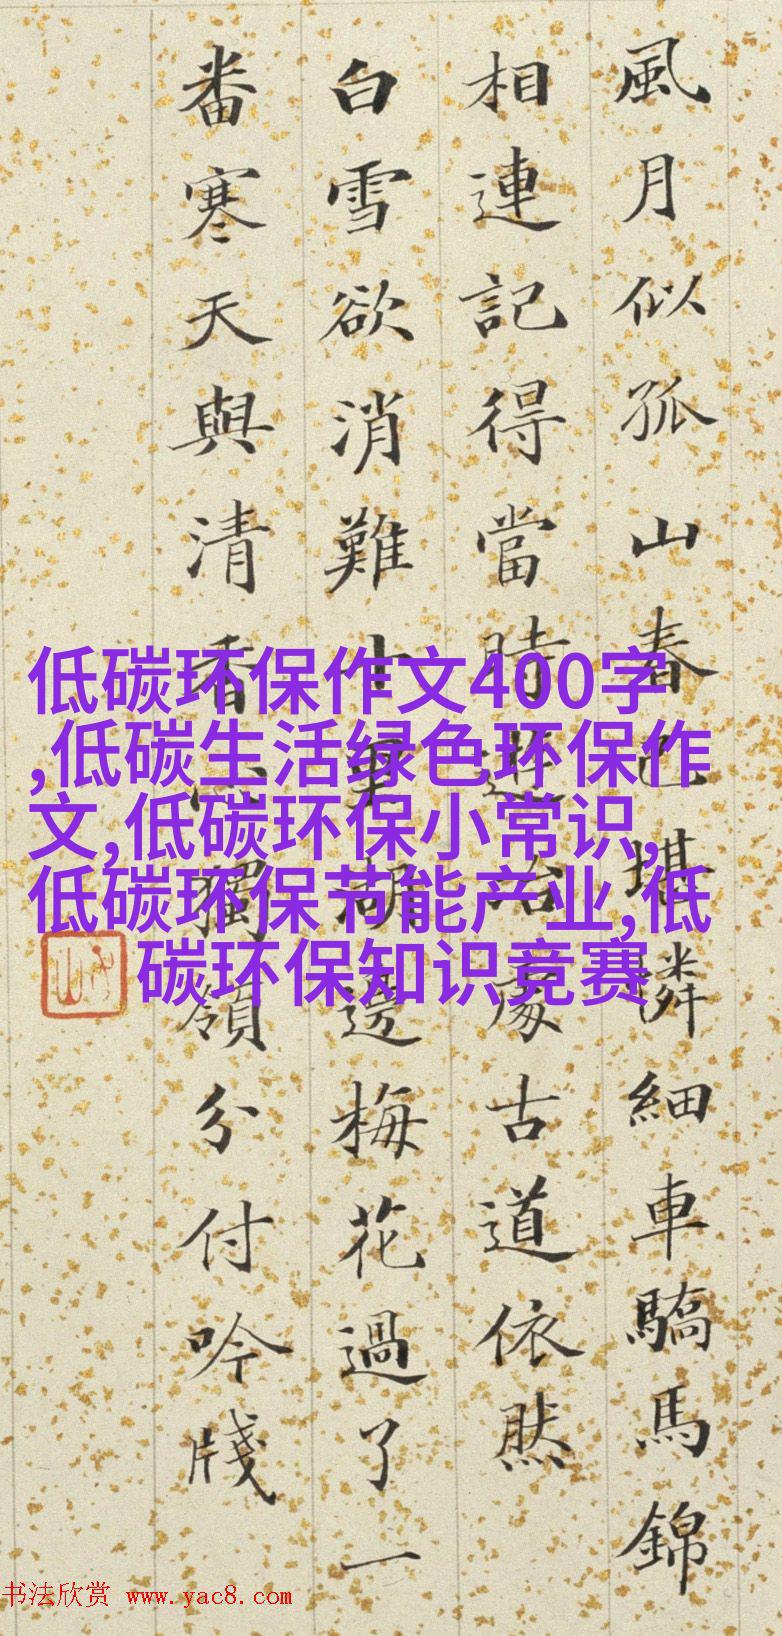 風月似孤山春色堪憐細車驕馬錦
相連記得當時遊冶處古道依然
白雪欲消難十里湖邊梅花過了一
番寒天與清香心獨領分付吟牋
低碳环保作文400字
,低碳生活绿色环保作
文,低碳环保小常识,
低碳环保节能产业,低
碳环保知识竞赛
书法欣赏 www.yac8.com